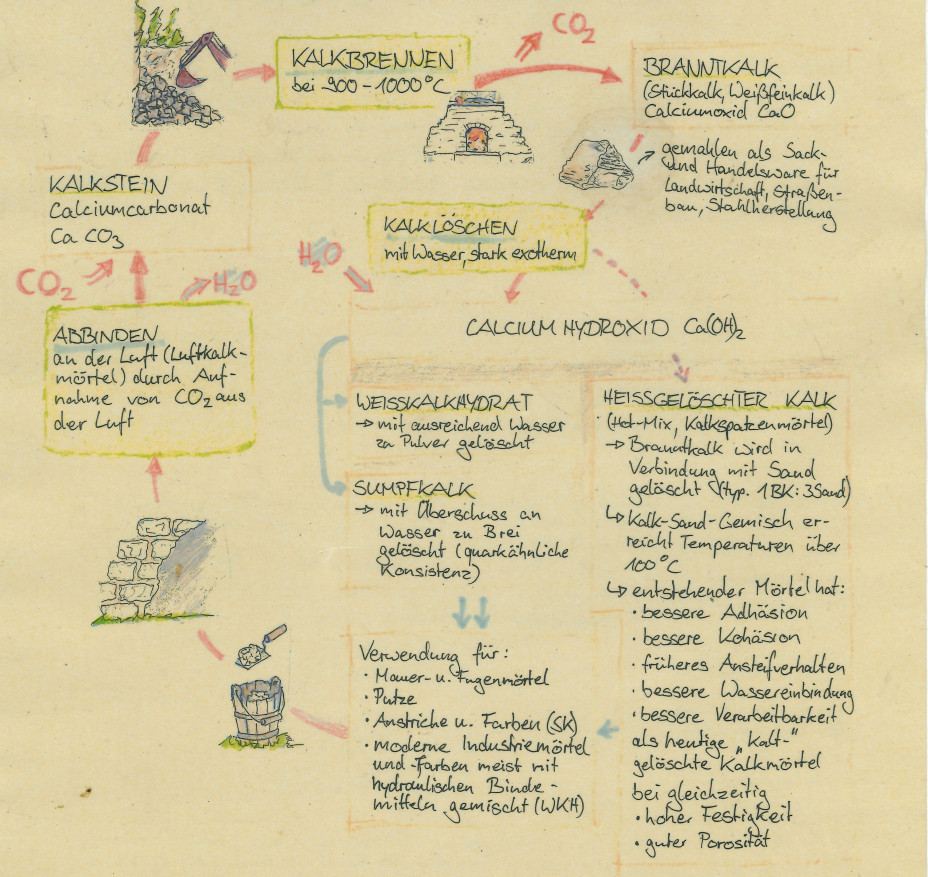 KALKBRENNEN
bei 900-1000°C
CO2
BRANNTKALK
(Stückkalk, Weißfeinkalk)
Calciumoxid CaO
gemahlen als Sack-
und Handelsware für
Landwirtschaft, Straßen-
bau, Stahlherstellung
KALKSTEIN
Calciumcarbonat
CaCO3
KALKLÖSCHEN
mit Wasser, stark exotherm
H2O
CO2
H2O
ABBINDEN
an der Luft (Luftkalk-
mörtel) durch Auf-
nahme von CO2 aus
der Luft
CALCIUMHYDROXID Ca(OH)2
WEISSKALKHYDRAT
→ mit ausreichend Wasser
zu Pulver gelöscht
SUMPFKALK
→ mit Überschuss an
Wasser zu Brei
gelöscht (quarkähnliche
Konsistenz)
HEISSGELÖSCHTER KALK
(Hot-Mix, Kalkspatzenmörtel)
→ Branntkalk wird in
Verbindung mit Sand
gelöscht (typ. 1BK:3Sand)
↳ Kalk-Sand-Gemisch er-
reicht Temperaturen über
100°C
↳ entstehender Mörtel hat:
• bessere Adhäsion
• bessere Kohäsion
• früheres Ansteifverhalten
• bessere Wassereinbindung
• bessere Verarbeitbarkeit
als heutige „Kalt-"
gelöschte Kalkmörtel
bei gleichzeitig
• hoher Festigkeit
• guter Porosität
Verwendung für:
• Mauer- u. Fugenmörtel
• Putze
• Anstriche u. Farben (SK)
• moderne Industriemörtel
und -Farben meist mit
hydraulischen Binde-
mitteln gemischt (WKH)